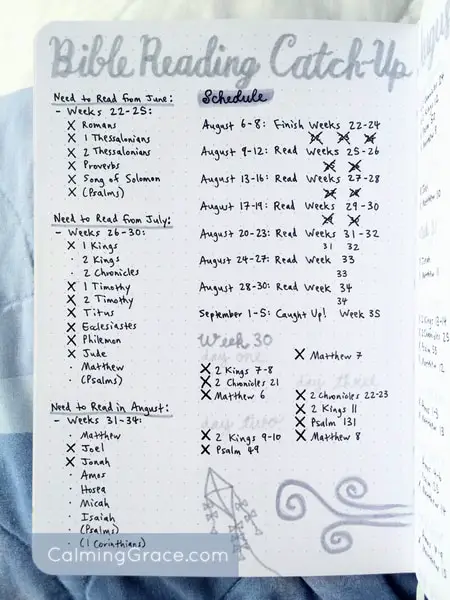 Bible Reading Catch-Up
Need to Read from June:
- Weeks 22-25:
X Romans
X 1 Thessalonians
X 2 Thessalonians
X Proverbs
X Song of Solomon
X (Psalms)
Need to Read from July:
- Weeks 26-30:
X 1 Kings
· 2 Kings
· 2 Chronicles
X 1 Timothy
X 2 Timothy
X Titus
X Ecclesiastes
X Philemon
X Jude
· Matthew
· (Psalms)
Need to Read in August:
- Weeks 31-34:
· Matthew
X Joel
X Jonah
· Amos
· Hosea
· Micah
· Isaiah
· (Psalms)
· (1 Corinthians)
Schedule
August 6-8: Finish Weeks 22-24
August 9-12: Read Weeks 25-26
August 13-16: Read Weeks 27-28
August 17-19: Read Weeks 29-30
August 20-23: Read Weeks 31-32
31 32
August 24-27: Read Week 33
33
August 28-30: Read Week 34
34
September 1-5: Caught Up! Week 35
Week 30
day one
X 2 Kings 7-8
X 2 Chronicles 21
X Matthew 6
day two
X 2 Kings 9-10
X Psalm 49
X Matthew 7
day three
X 2 Chronicles 22-23
X 2 Kings 11
X Psalm 131
X Matthew 8
CalmingGrace.com